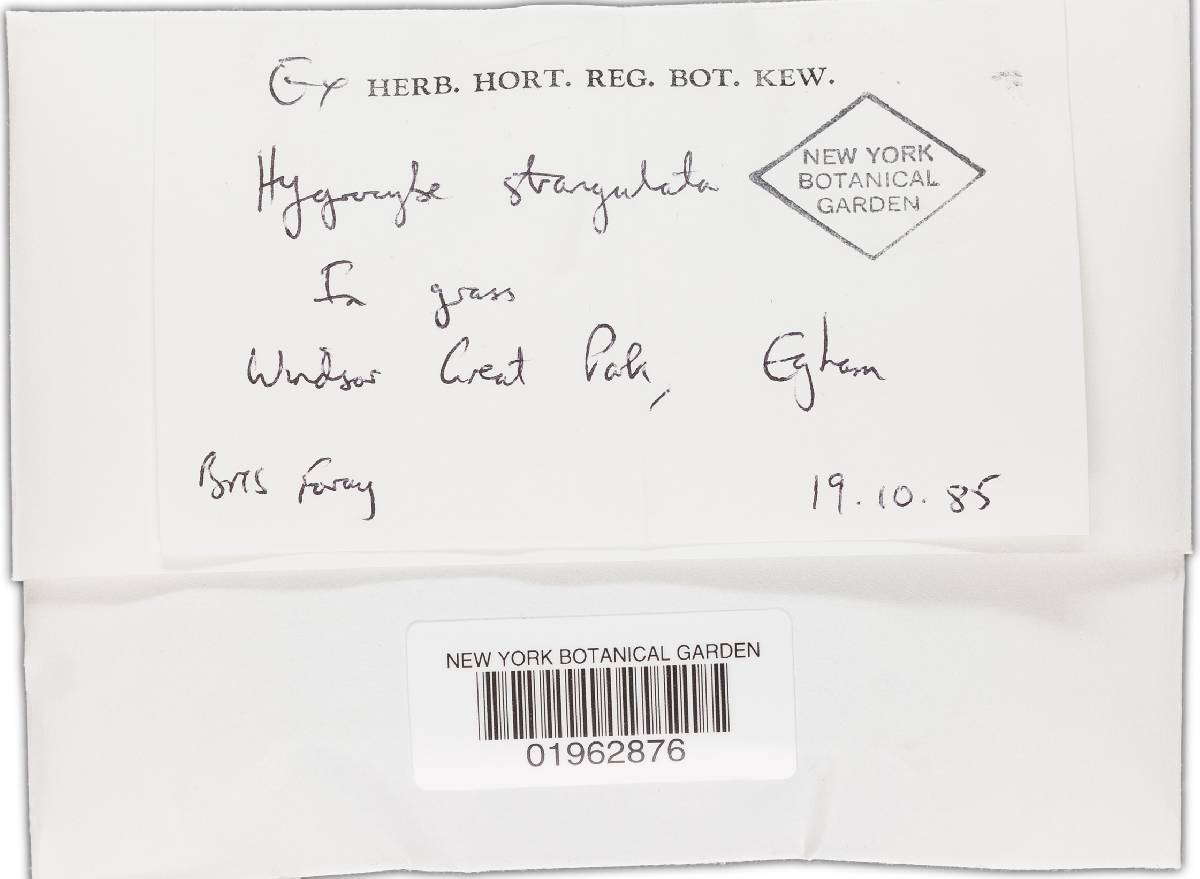 Ex HERB. HORT. REG. BOT. KEW.
NEW YORK
BOTANICAL
GARDEN
Hygrocybe strangulata
In grass
Windsor Great Park, Egham
BMS Foray 19.10.85
NEW YORK BOTANICAL GARDEN
01962876